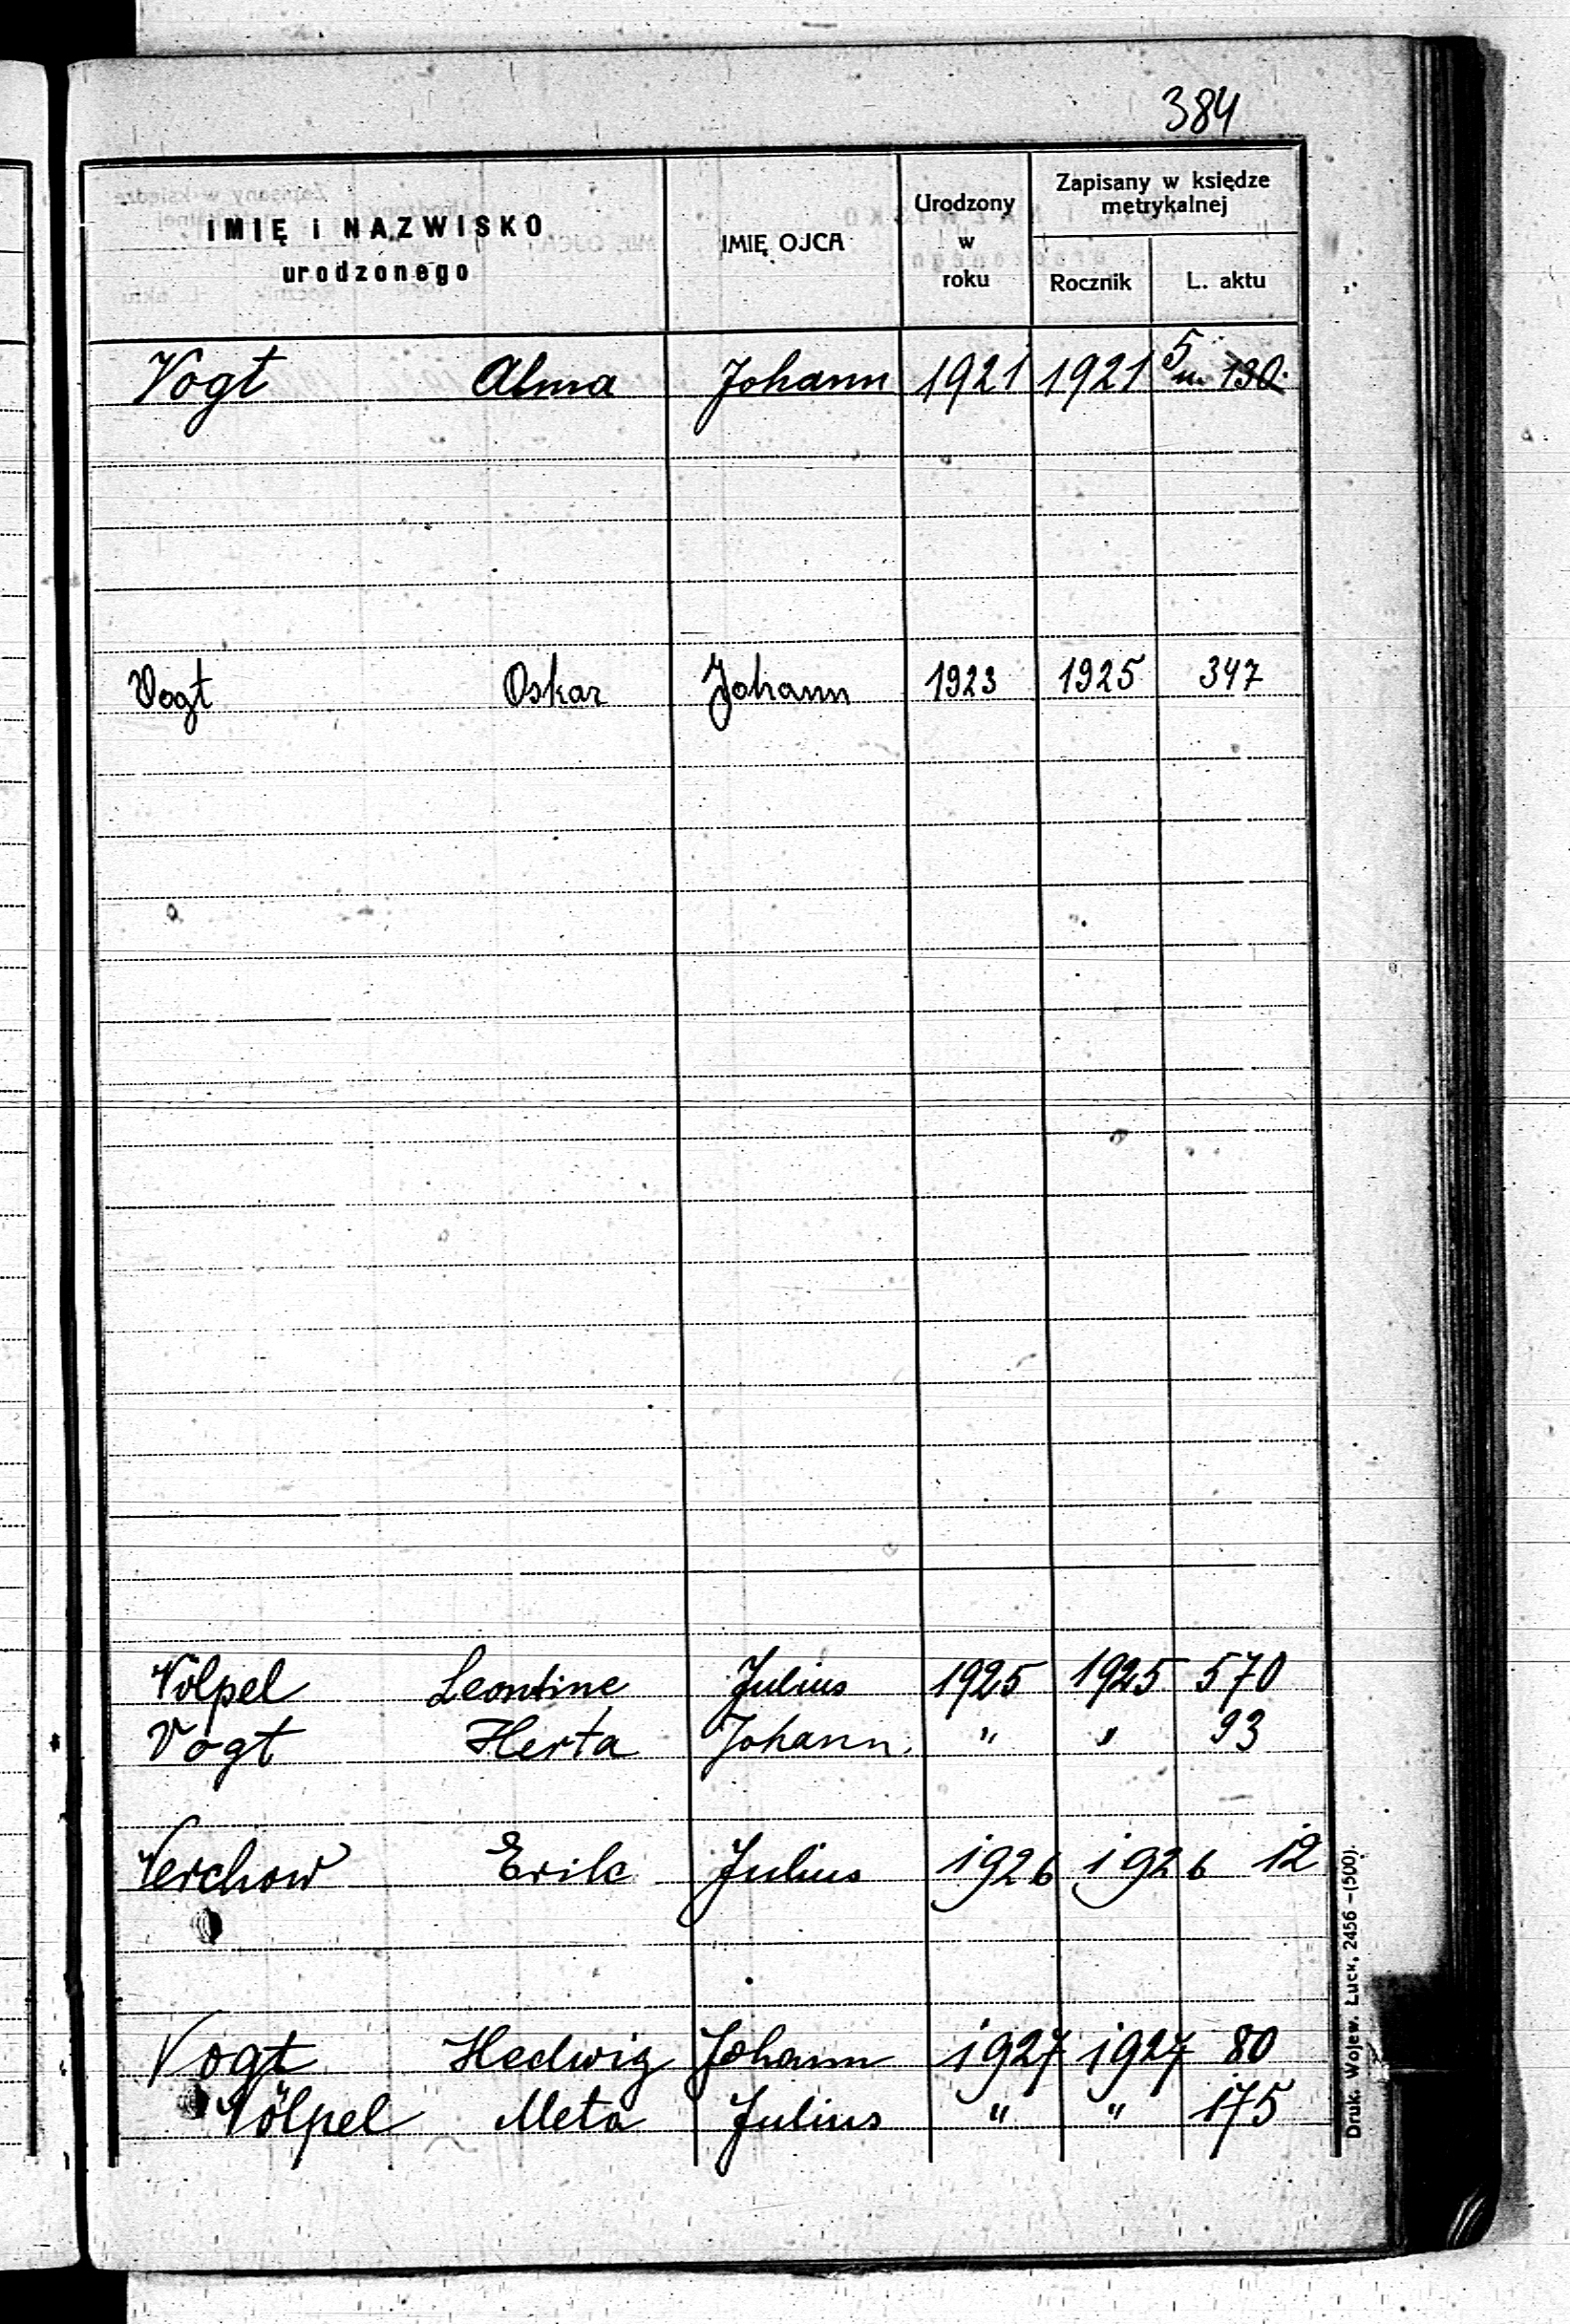 384
IMIĘ i NAZWISKO urodzonego IMIĘ OJCA Urodzony w roku Zapisany w księdze metrykalnej Rocznik L. aktu
Vogt Alma Johann 1921 1921 5 130
Vogt Oskar Johann 1923 1925 347
Völpel Leontine Julius 1925 1925 570
Vogt Herta Johann. " " 93
Verchow Erik Julius 1926 1926 12
Vogt Hedwig Johann 1927 1927 80
Völpel Meta Julius " " 175
Druk. Wojew. Łuck, 2456 –(500).